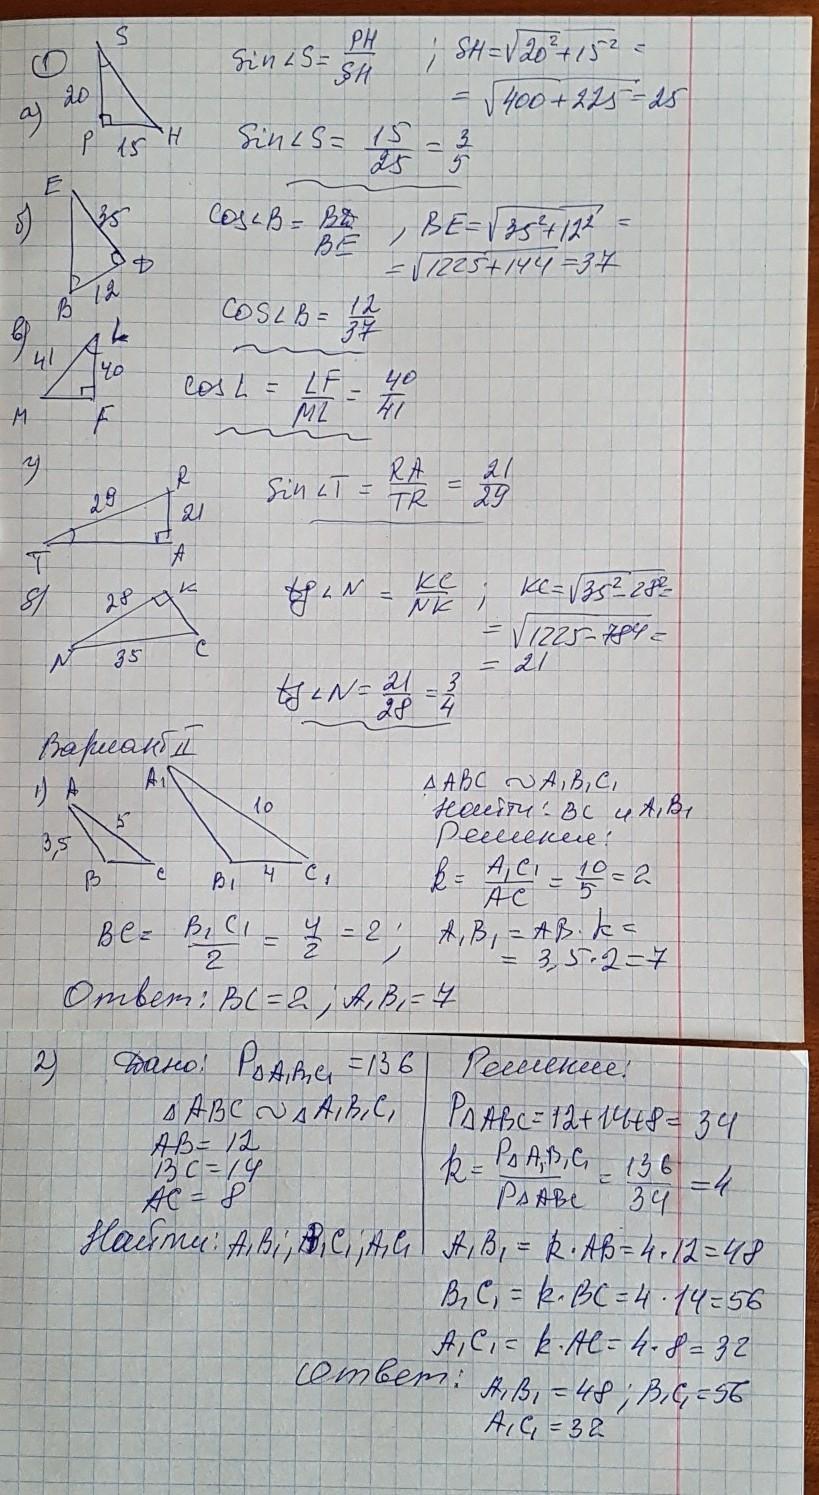 ①
а)
S
20
P 15 H
Sin∠S = PH/SH ; SH = √20²+15² =
= √400+225 = 25
Sin∠S = 15/25 = 3/5
б)
E
35
D
12
B
cos∠B = BD/BE , BE = √35²+12² =
= √1225+144 = 37
cos∠B = 12/37
в)
L
41
40
M F
cos L = LF/ML = 40/41
г)
29
R
21
T A
Sin∠T = RA/TR = 21/29
28 K
N 35 C
tg∠N = KC/NK ; KC = √35²-28² =
= √1225-784 =
= 21
tg∠N = 21/28 = 3/4
Вариант II
1) A
3,5 5
B C
A₁
10
B₁ 4 C₁
△ABC ∼ A₁B₁C₁
Найти: BC и A₁B₁
Решение:
k = A₁C₁/AC = 10/5 = 2
BC = B₁C₁/2 = 4/2 = 2 ; A₁B₁ = AB · k =
= 3,5 · 2 = 7
Ответ: BC = 2 ; A₁B₁ = 7
2) Дано: P△A₁B₁C₁ = 136
△ABC ∼ △A₁B₁C₁
AB = 12
BC = 14
AC = 8
Найти: A₁B₁; B₁C₁; A₁C₁
Решение:
P△ABC = 12+14+8 = 34
k = P△A₁B₁C₁/P△ABC = 136/34 = 4
A₁B₁ = k · AB = 4 · 12 = 48
B₁C₁ = k · BC = 4 · 14 = 56
A₁C₁ = k · AC = 4 · 8 = 32
Ответ: A₁B₁ = 48 ; B₁C₁ = 56
A₁C₁ = 32